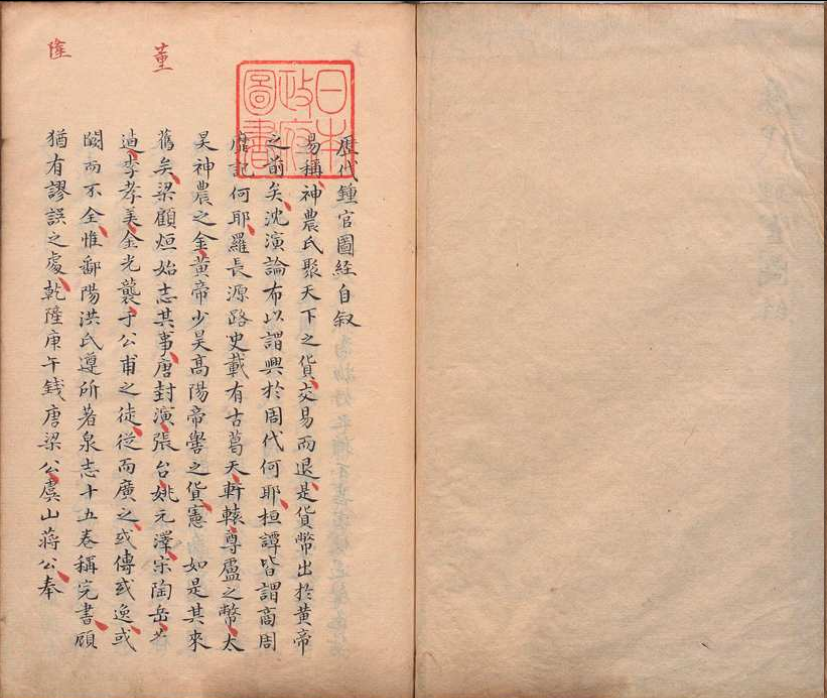 董
隆
日本
政府
圖書
歷代鍾官圖經自叙
易稱神農氏聚天下之貨交易而退是貨幣出於黃帝
之前矣沈演論布以謂興於周代何耶桓譚皆謂商周
記何耶羅長源路史載有古葛天軒轅尊盧之幣太
昊神農之金黃帝少昊高陽帝嚳之貨憲如是其來
舊矣梁顧烜始志其事唐封演張台姚元澤宋陶岳
迪李孝美金光襲于公甫之徒從而廣之或傳或逸或
闕而不全惟鄱陽洪氏遵所著泉志十五卷稱完書顧
猶有謬誤之處乾隆庚午錢唐梁公虞山蔣公奉